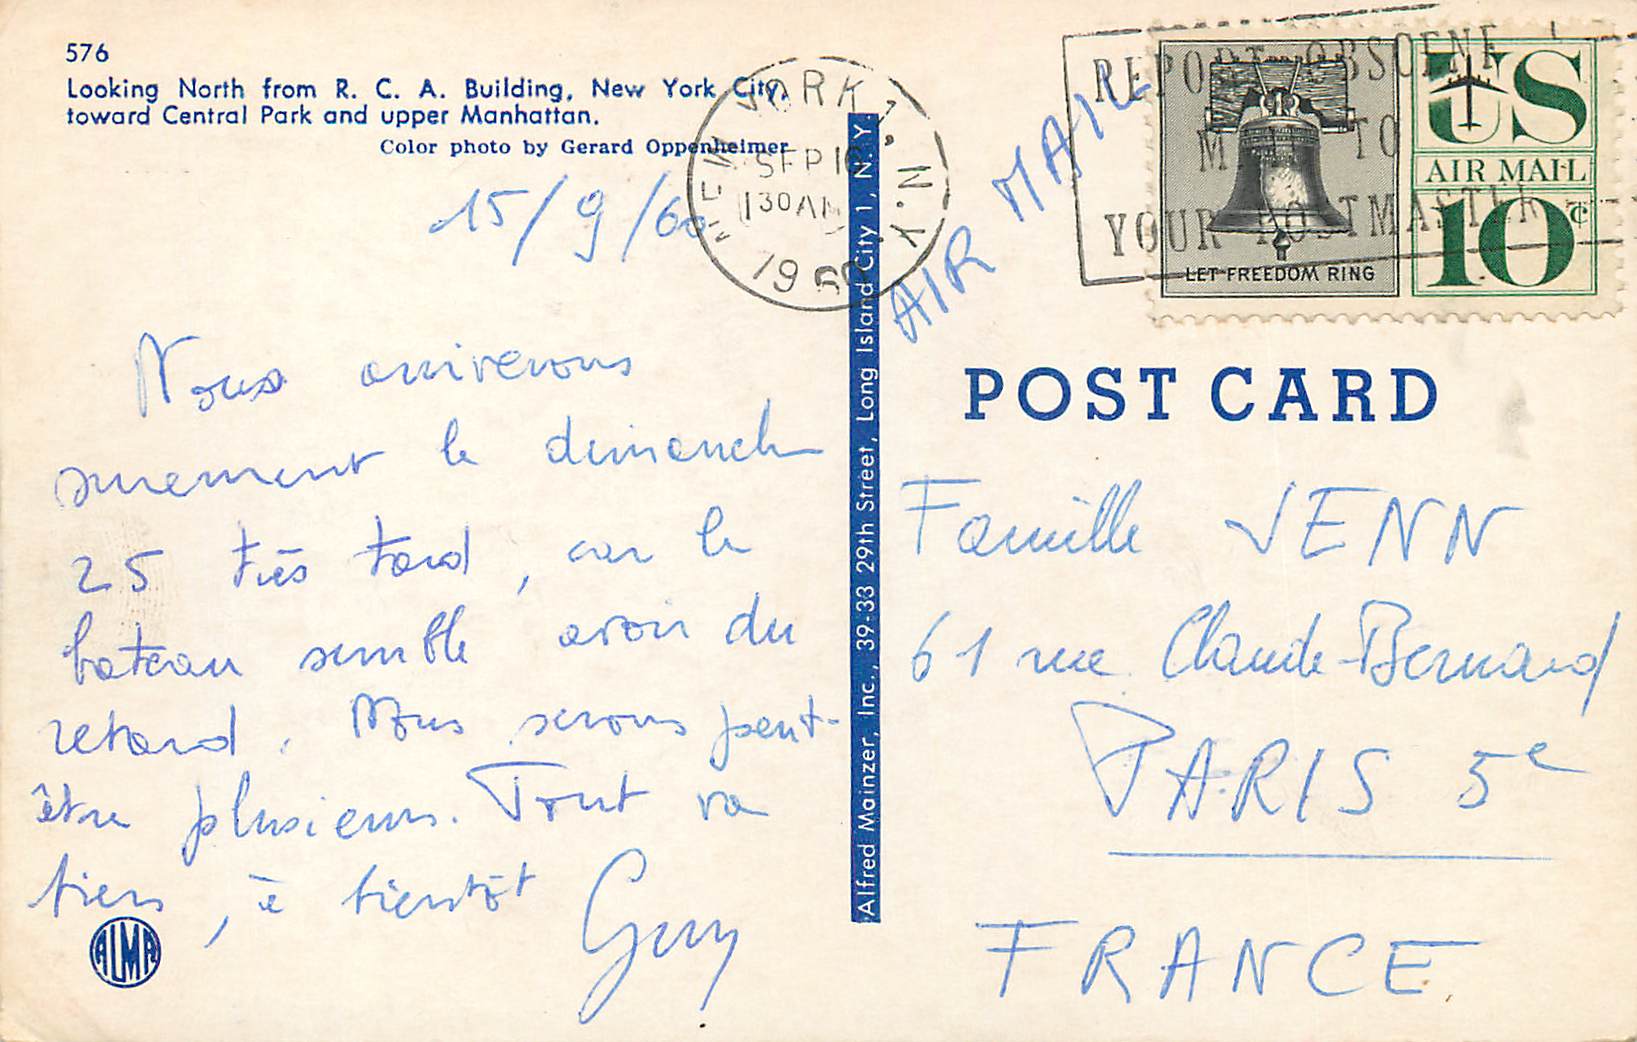 576
Looking North from R. C. A. Building, New York City,
toward Central Park and upper Manhattan.
Color photo by Gerard Oppenheimer
15/9/60
NEW YORK 1, N.Y.
SEP 16
130 AM
1960
AIR MAIL
REPORT OBSCENE
MAIL TO
YOUR POSTMASTER
LET FREEDOM RING
US
AIR MAIL
10¢
Nous arriverons
surement le dimanche
25 très tard, car le
bateau semble avoir du
retard. Nous serons peut-
être plusieurs. Tout va
bien, à bientôt
Guy
ALMA
Alfred Mainzer, Inc., 39-33 29th Street, Long Island City 1, N.Y.
POST CARD
Famille JENN
61 rue Claude-Bernard
PARIS 5e
FRANCE